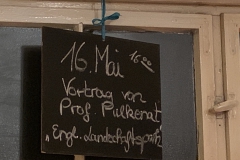 16. Mai 16.00
Vortrag von
Prof. Pulkenat
"Engl. Landschaftspark"